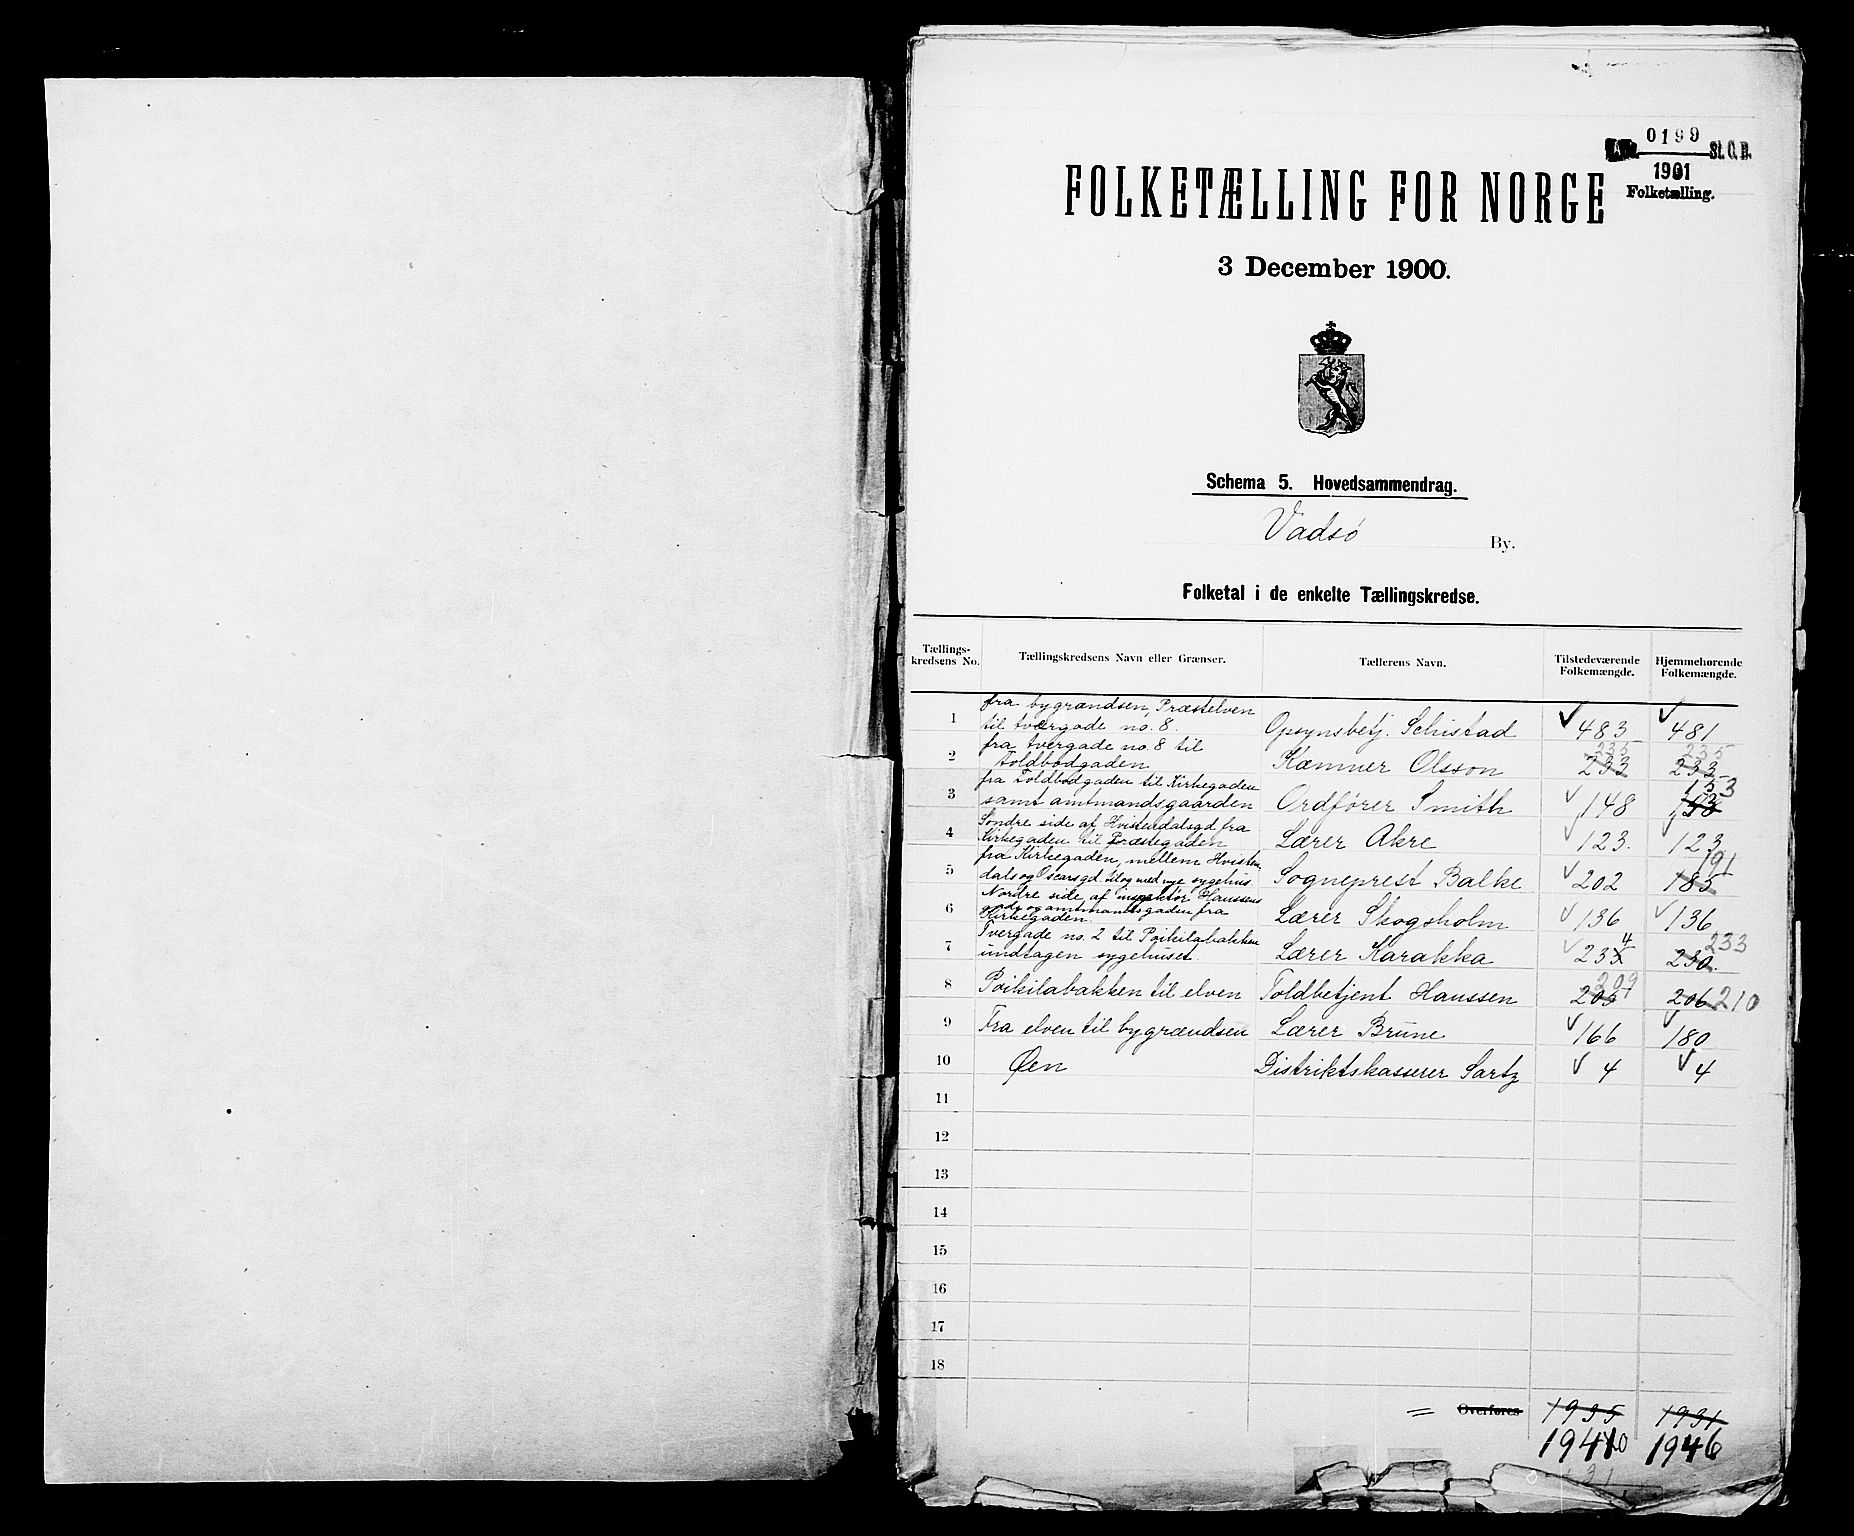 0199
St. C. B.
1901
Folketælling.
FOLKETÆLLING FOR NORGE
3 December 1900.
Schema 5. Hovedsammendrag.
Vadsø By.
Folketal i de enkelte Tællingskredse.
Tællings-
kredsens No.
Tællingskredsens Navn eller Grænser.
Tællerens Navn.
Tilstedeværende
Folkemængde.
Hjemmehørende
Folkemængde.
fra bygrændsen, Præstelven
1 til tværgade no. 8. Opsynsbetj. Schistad 483 481
fra tvergade no. 8 til 235 235
2 Toldbodgaden Kæmner Olsson 233 233
fra Toldbodgaden til Kirkegaden 153
3 samt amtmandsgaarden Ordfører Smith 148
Søndre side af Hvistendalsgd fra
4 Kirkegaden til Præstegaden Lærer Akre 123. 123
fra Kirkegaden, mellem Hvisten 191
5 dals og Oscarsgd. til og med nye sygehus Sogneprest Balke 202 185
Nordre side af inspektør Hanssens
gade og amtmandsgaden fra
6 Kirkegaden. Lærer Skogsholm 136 136
Tvergade no. 2 til Poikilabakken 4 233
7 undtagen sygehuset. Lærer Karakka 233 230.
8 Poikilabakken til elven Toldbetjent Hanssen 209 206 210
9 Fra elven til bygrændsen Lærer Brune 166 180
10 Øen Distriktskasserer Sartz 4 4
11
12
13
14
15
16
17
18
= Overføres 1935 1931
1940 1946